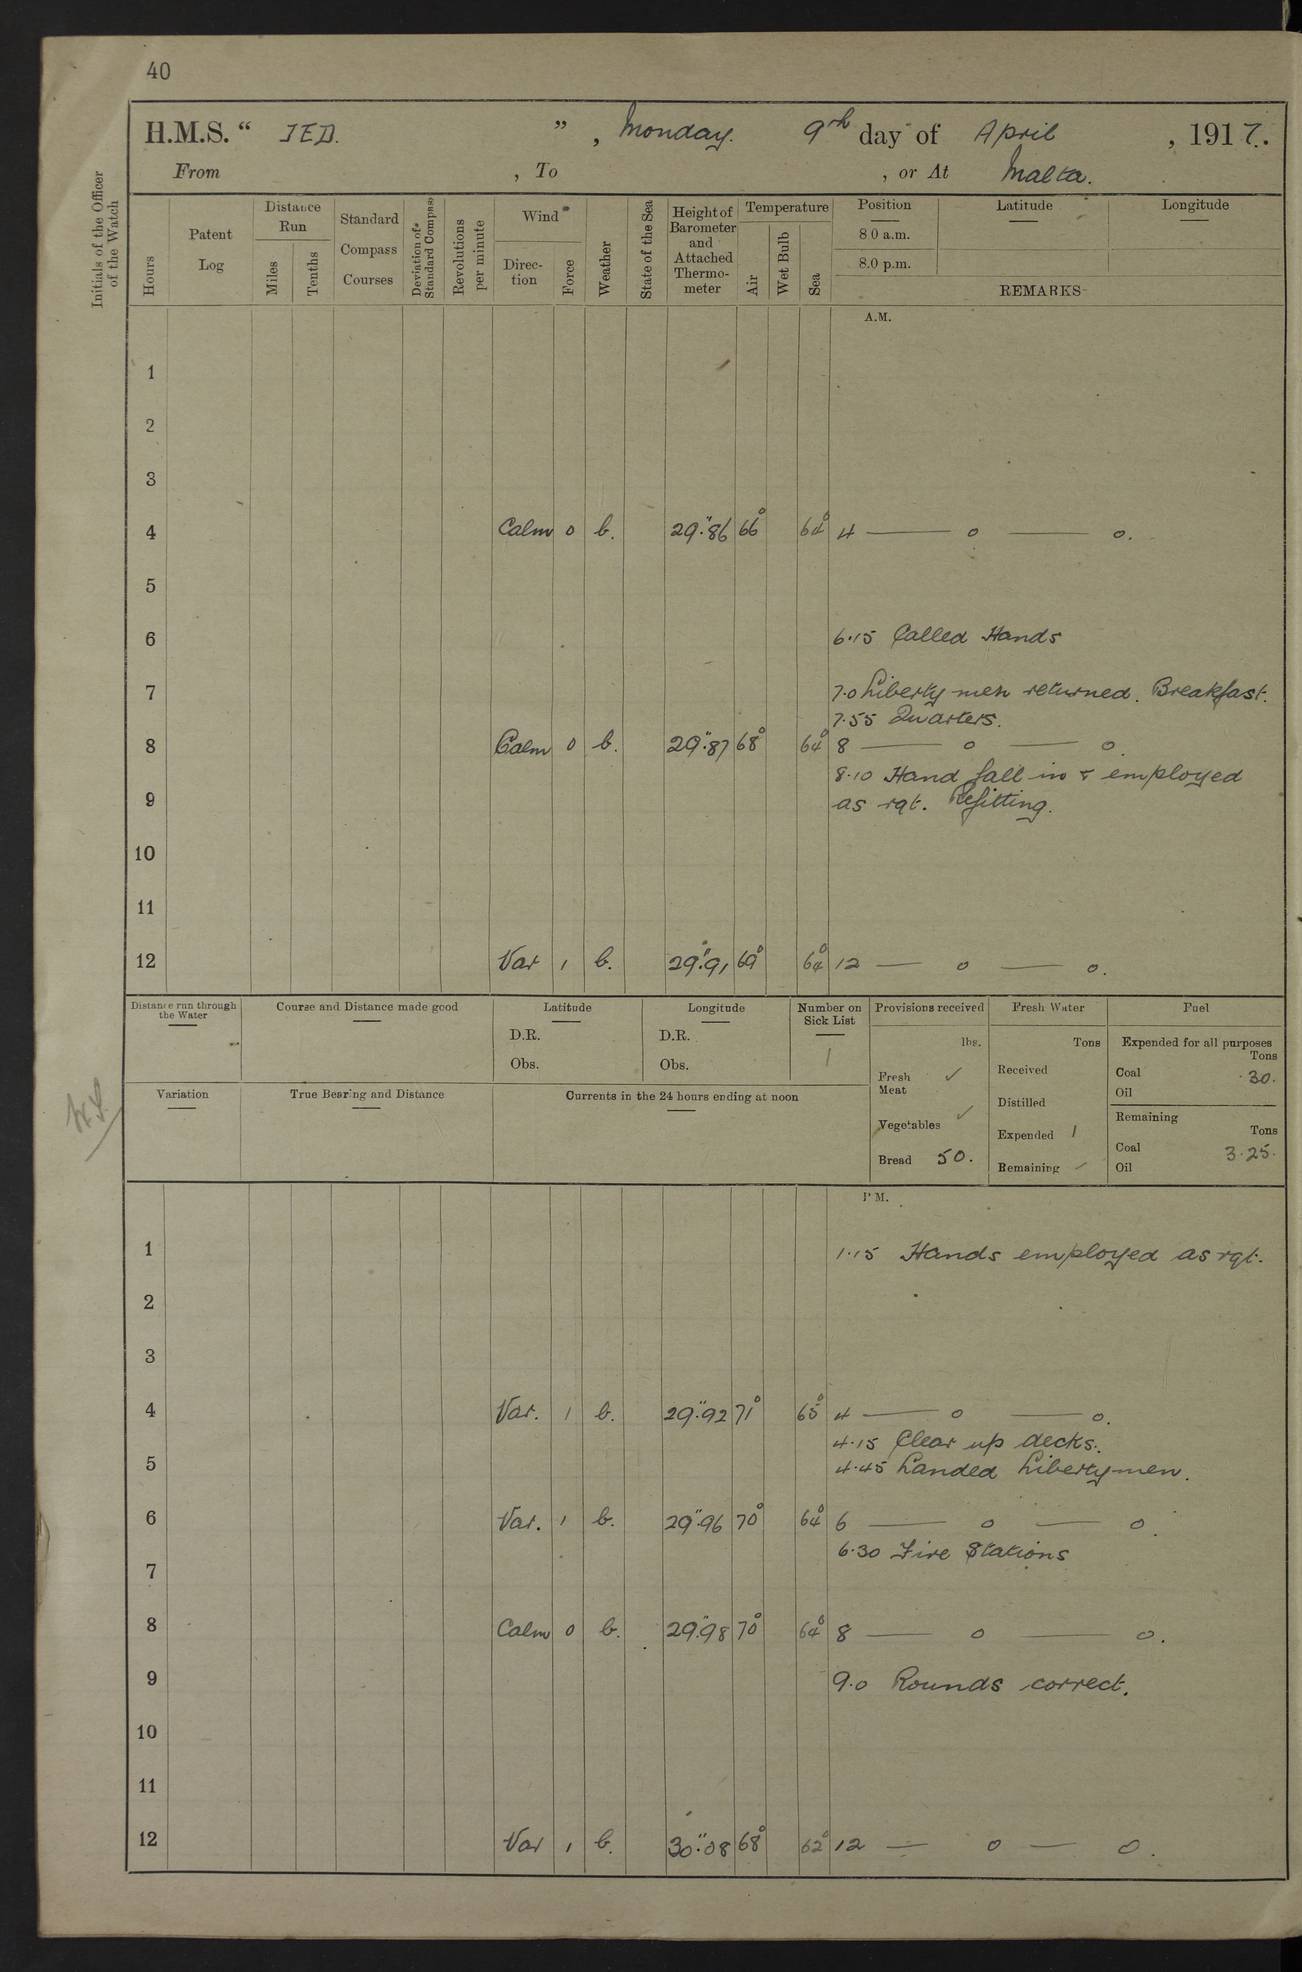 40
H.M.S. “ JED. ” , Monday. 9th day of April , 1917.
From , To , or At Malta.
Initials of the Officer of the Watch
Hours
Patent Log
Distance Run
Miles
Tenths
Standard Compass Courses
Deviation of Standard Compass
Revolutions per minute
Wind
Direction
Force
Weather
State of the Sea
Height of Barometer and Attached Thermometer
Temperature
Air
Wet Bulb
Sea
Position
8.0 a.m.
8.0 p.m.
Latitude
Longitude
REMARKS
A.M.
1
2
3
4 Calm 0 b. 29".86 66° 64° 4 — o — o.
5
6 6.15 Called Hands
7 7.0 Liberty men returned. Breakfast.
7.55 Quarters.
8 Calm 0 b. 29".87 68° 64° 8 — o — o.
8.10 Hand fall in & employed
9 as rqt. Refitting.
10
11
12 Var 1 b. 29".91 69° 64° 12 — o — o.
Distance run through the Water
Course and Distance made good
Latitude
D.R.
Obs.
Longitude
D.R.
Obs.
Number on Sick List
1
Provisions received
lbs.
Fresh Meat ✓
Vegetables ✓
Bread 50.
Fresh Water
Tons
Received
Distilled
Expended 1
Remaining
Fuel
Expended for all purposes
Tons
Coal .30.
Oil
Remaining
Tons
Coal 3.25.
Oil
Variation
True Bearing and Distance
Currents in the 24 hours ending at noon
P.M.
1 1.15 Hands employed as rqt.
2
3
4 Var. 1 b. 29".92 71° 65° 4 — o — o.
4.15 Clear up decks.
5 4.45 Landed Libertymen.
6 Var. 1 b. 29".96 70° 64° 6 — o — o.
6.30 Fire Stations
7
8 Calm 0 b. 29".98 70° 64° 8 — o — o.
9 9.0 Rounds correct.
10
11
12 Var 1 b. 30".08 68° 62° 12 — o — o.